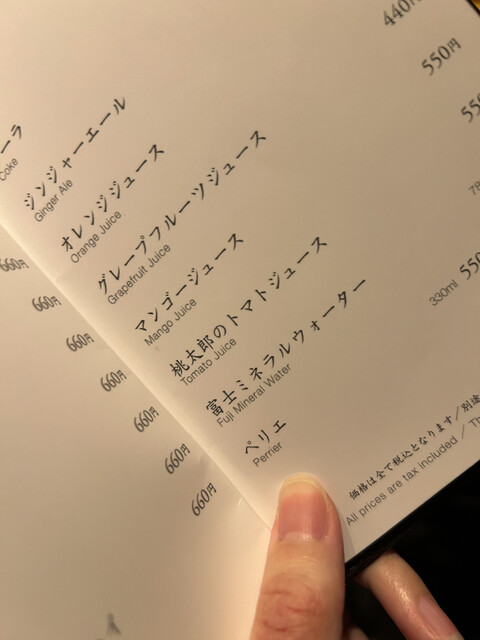 ーラ
Coke
ジンジャーエール
Ginger Ale
オレンジジュース
Orange Juice
グレープフルーツジュース
Grapefruit Juice
マンゴージュース
Mango Juice
桃太郎のトマトジュース
Tomato Juice
富士ミネラルウォーター
Fuji Mineral Water
ペリエ
Perrier
440円
550円
55
78
330ml 550
660円
660円
660円
660円
660円
660円
660円
価格は全て税込となります/別途
All prices are tax included / Th